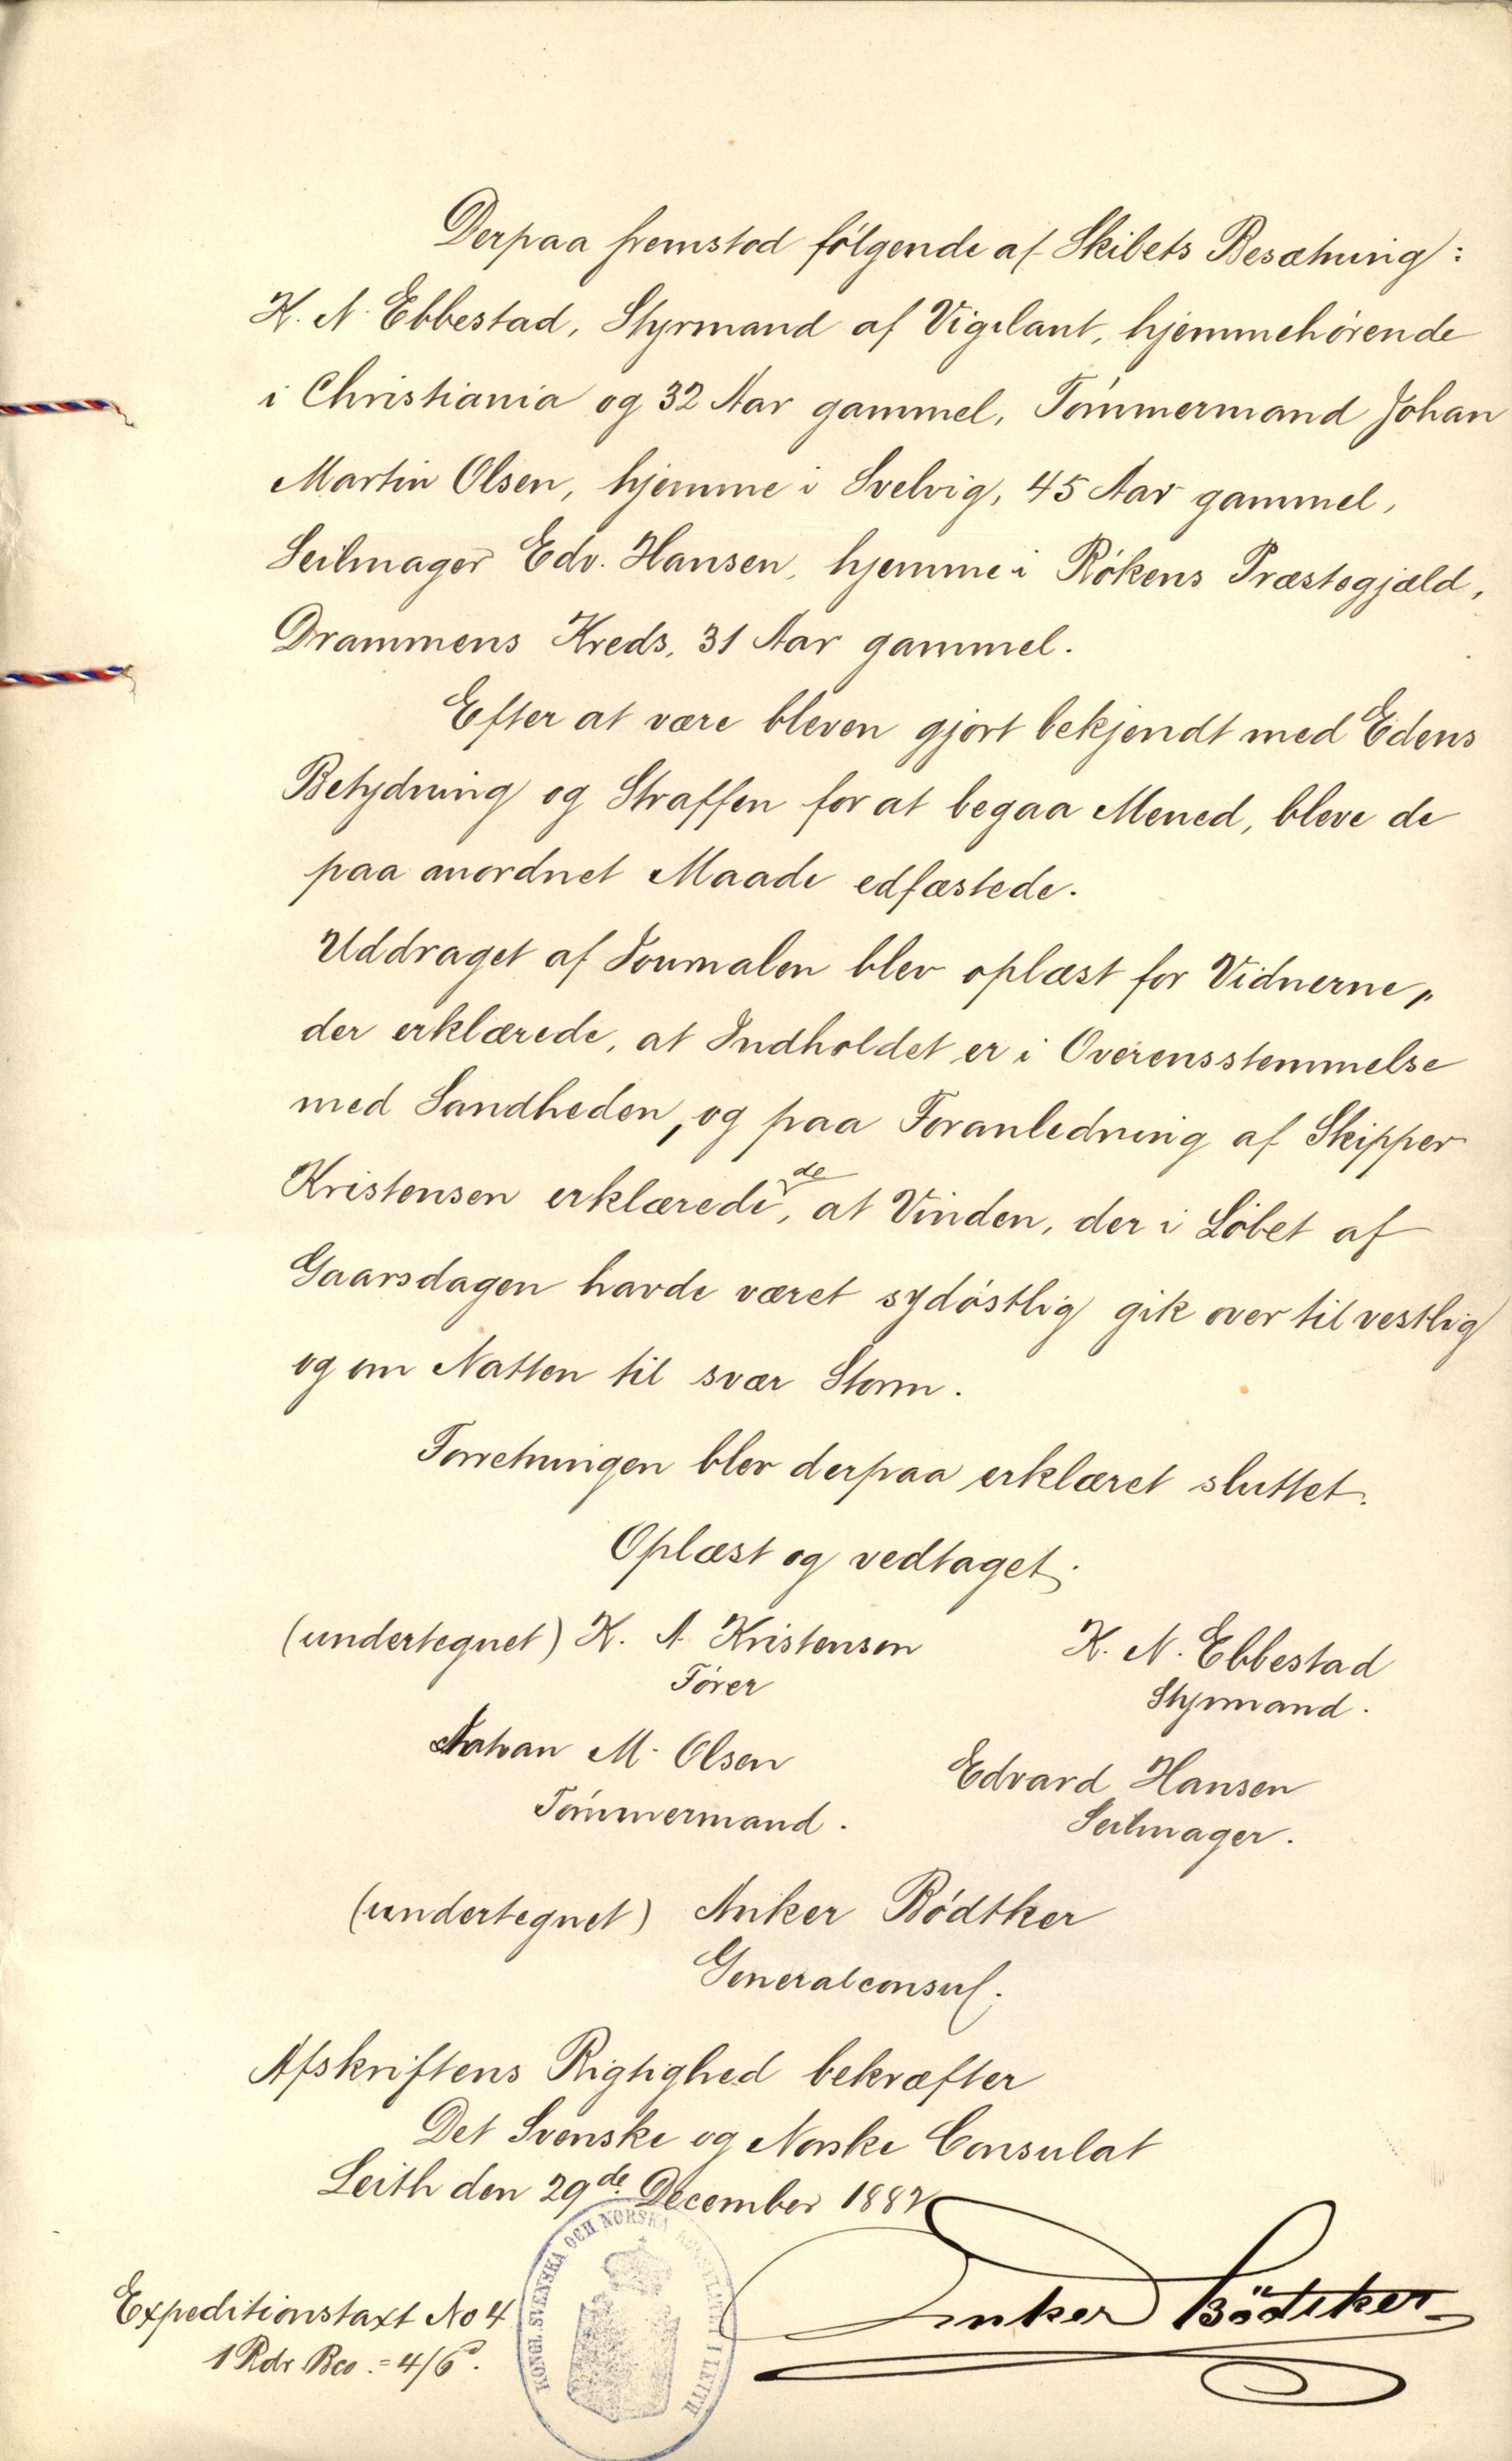 Derpaa fremstod følgende af Skibets Besætning:
K. N. Ebbestad, Styrmand af Vigilant, hjemmehørende
i Christiania og 32 Aar gammel, Tømmermand Johan
Martin Olsen, hjemme i Svelvig, 45 Aar gammel,
Seilmager Edv. Hansen, hjemme i Røkens Præstegjæld,
Drammens Kreds, 31 Aar gammel.
Efter at være bleven gjort bekjendt med Edens
Betydning og Straffen for at begaa Mened, bleve de
paa anordnet Maade edfæstede.
Uddraget af Journalen blev oplæst for Vidnerne,,
der erklærede, at Indholdet er i Overensstemmelse
med Sandheden, og paa Foranledning af Skipper
de
Kristensen erklærede, at Vinden, der i Løbet af
Gaarsdagen havde været sydøstlig gik over til vestlig
og om Natten til svær Storm.
Forretningen blev derpaa erklæret sluttet.
Oplæst og vedtaget.
(undertegnet) K. A. Kristensen K. N. Ebbestad
Fører Styrmand.
Johan M. Olsen Edvard Hansen
Tømmermand. Seilmager.
(undertegnet) Anker Bødtker
Generalconsul.
Afskriftens Rigtighed bekræfter
Det Svenske og Norske Consulat
Leith den 29de December 1882
KONGL. SVENSKA OCH NORSKA KONSULATET I LEITH
Anker Bödtker
Expeditionstaxt No 4
1 Rdr Bco. = 4/6d.